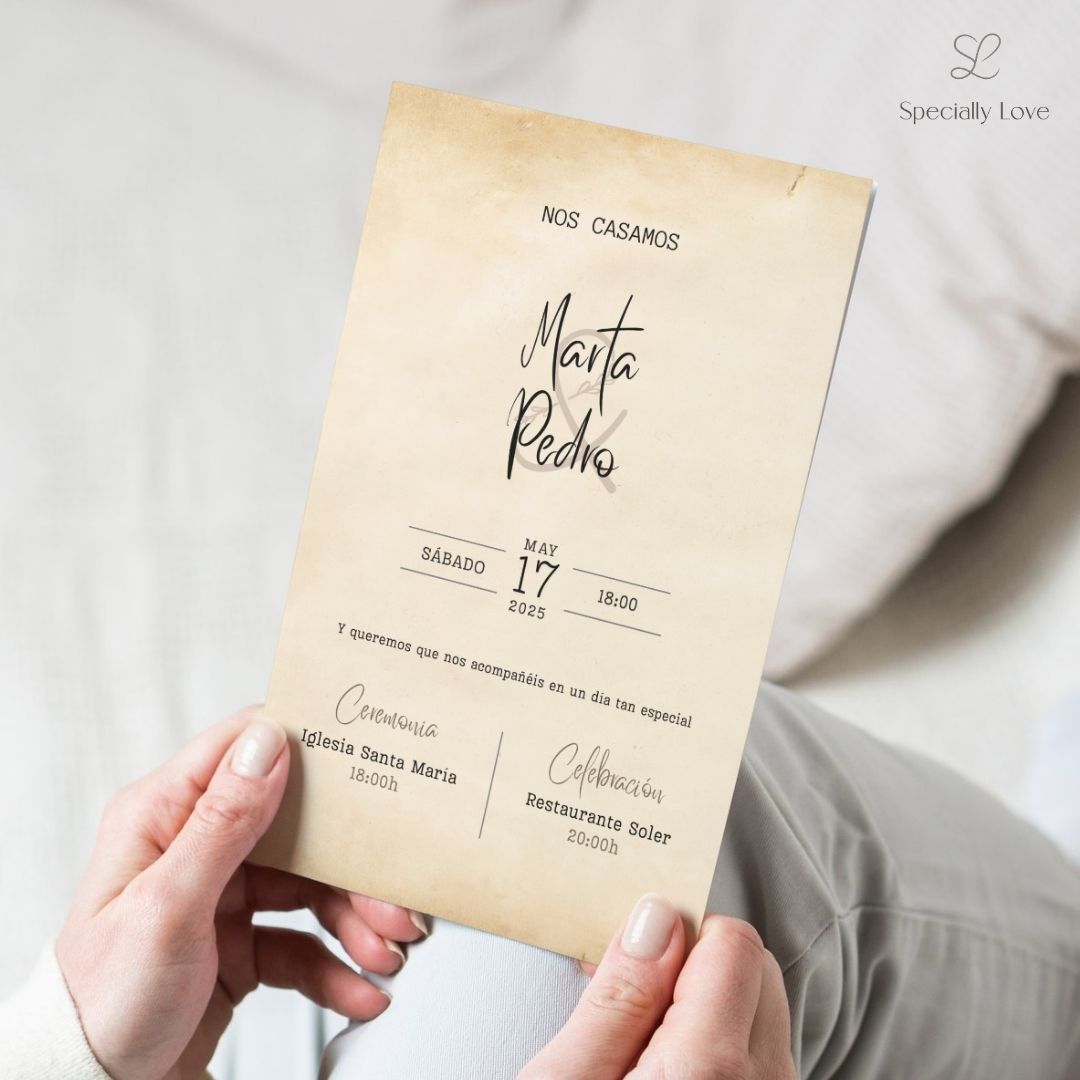 SL
Specially Love
NOS CASAMOS
Marta
&
Pedro
SÁBADO
MAY
17
2025
18:00
Y queremos que nos acompañéis en un día tan especial
Ceremonia
Iglesia Santa María
18:00h
Celebración
Restaurante Soler
20:00h